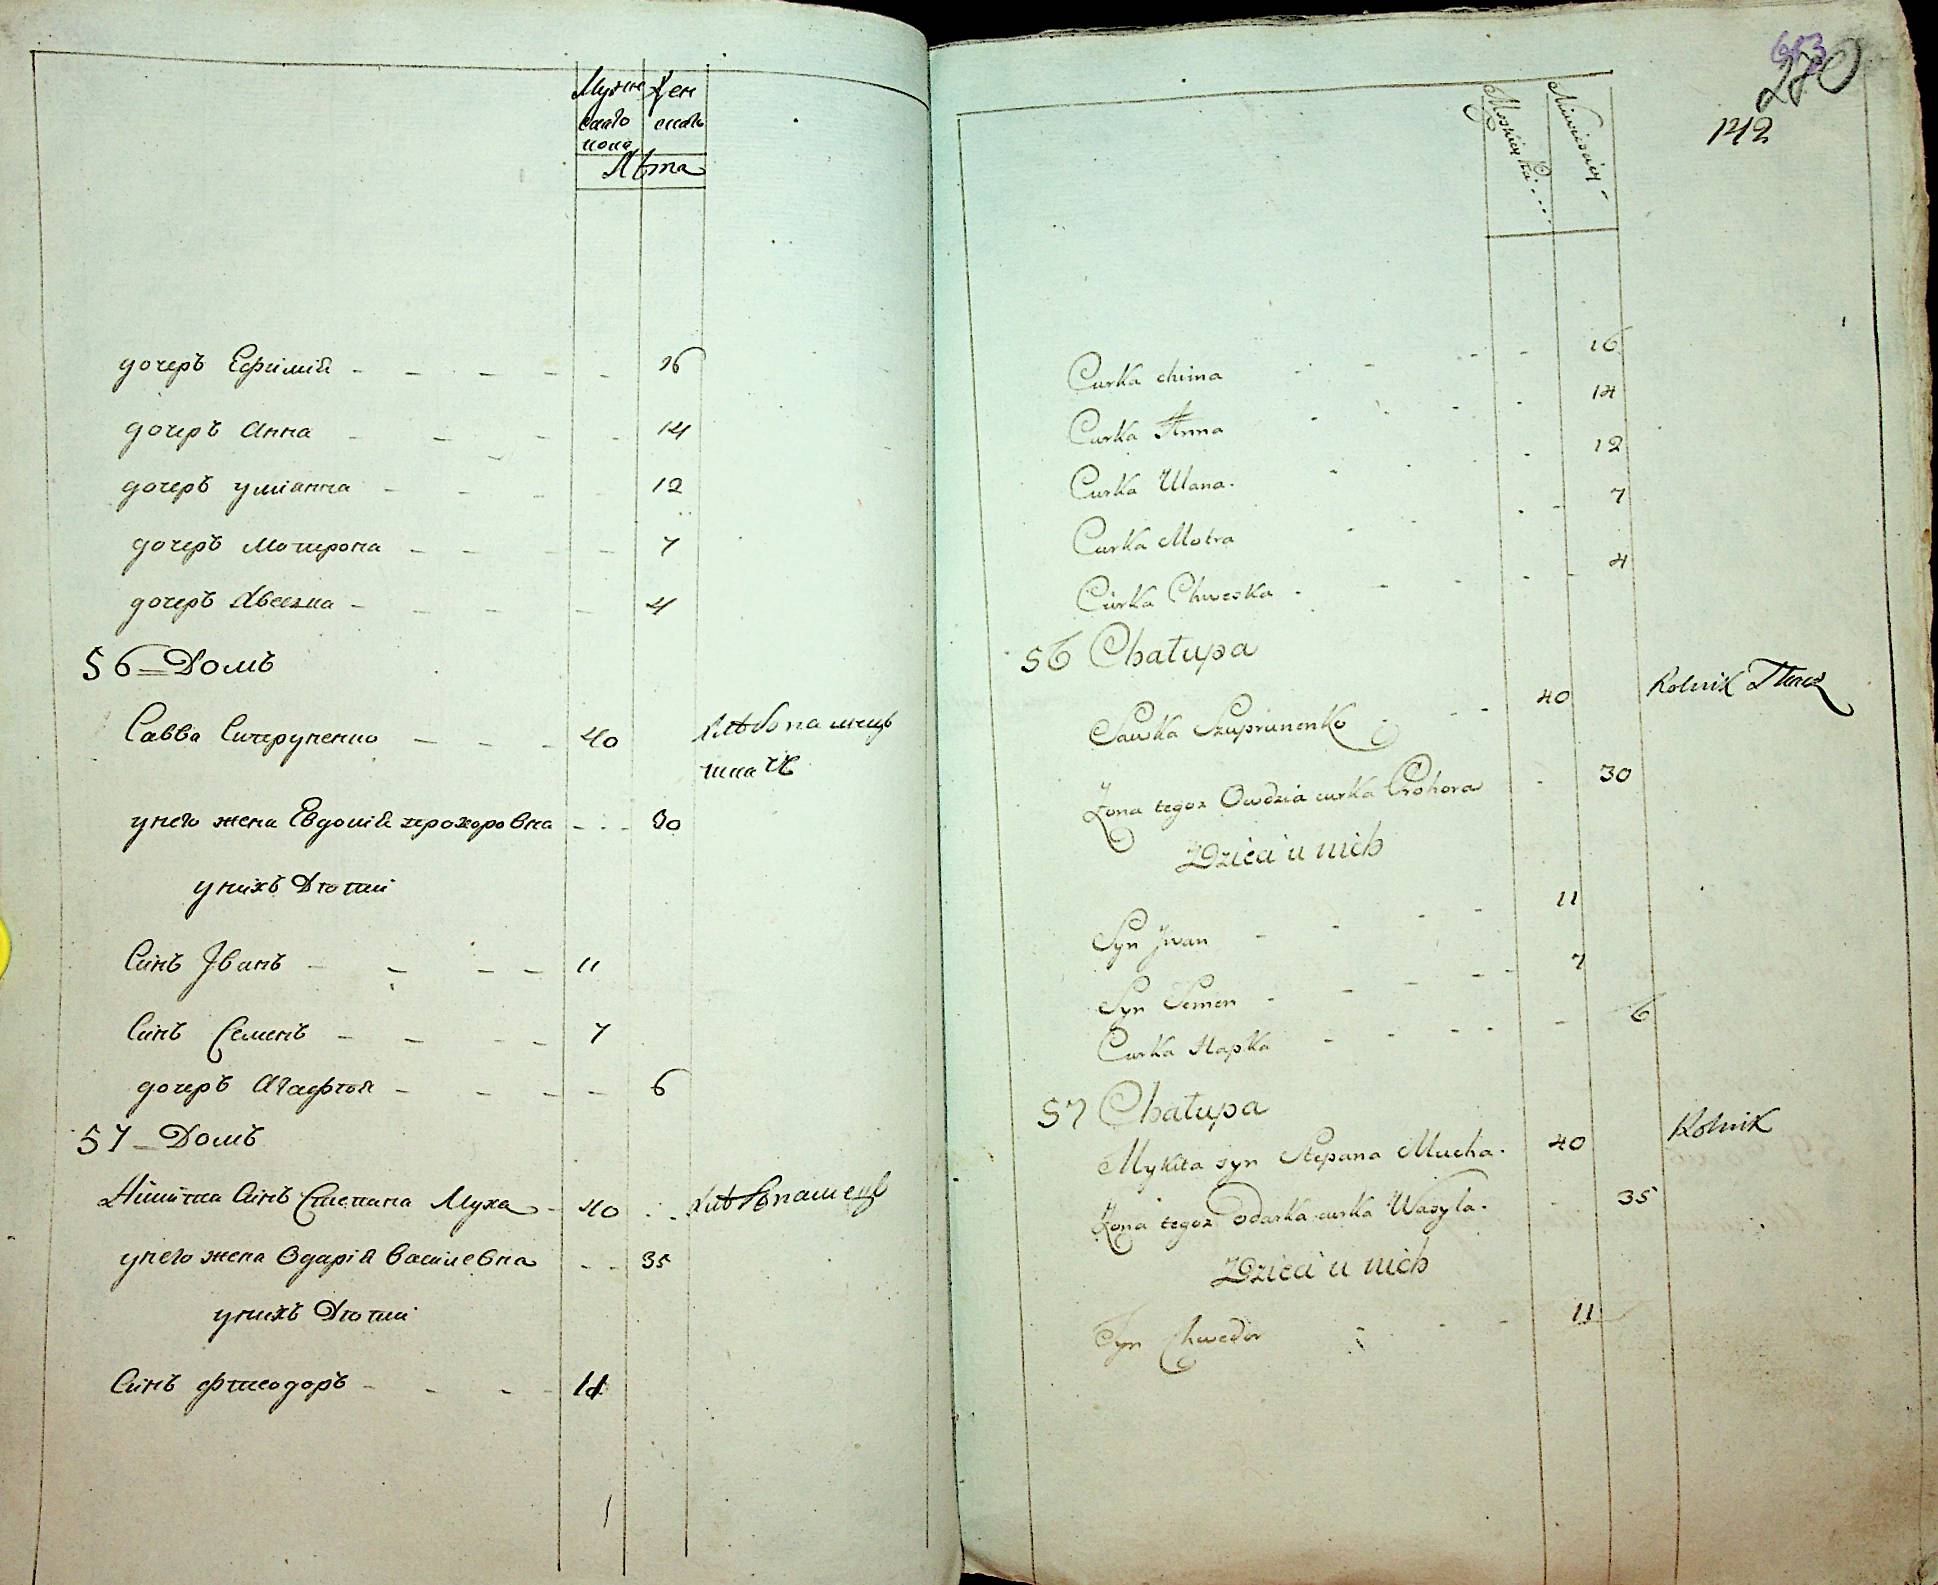 Мужескаго пола
Женскаго
Лѣта
дочеръ Ефимій 16
дочеръ Анна 14
дочеръ Улиянна 12
дочеръ Мотрона 7
дочеръ 4
56 Домъ
Савва Супруненко 40 хлѣбопашецъ
ткачъ
унего жена Евдокій Прохоровна 30
унихъ Дѣти
Синъ Іванъ 11
Синъ Семенъ 7
дочеръ Агафіей 6
57 Домъ
Никита Синъ Степана Муха 40 хлѣбопашецъ
унего жена Одарій Василевна 35
унихъ Дѣти
Синъ Фтеодоръ 11
280
142
Męskiey
Niewieściey
Curka chima 16
Curka Anna 14
Curka Ulana 12
Curka Motra 7
Curka Chweska 4
56 Chałupa
Sawka Szuprunenko 40 Rolnik Tkacz
Żona tegoż Owdzia curka Prohora 30
Dzieci u nich
Syn Jwan 11
Syn Semen 7
Curka Hapka 6
57 Chałupa
Mykita syn Stepana Mucha 40 Rolnik
Żona tegoż Odarka curka Wasyla 35
Dzieci u nich
Syn Chwedor 11